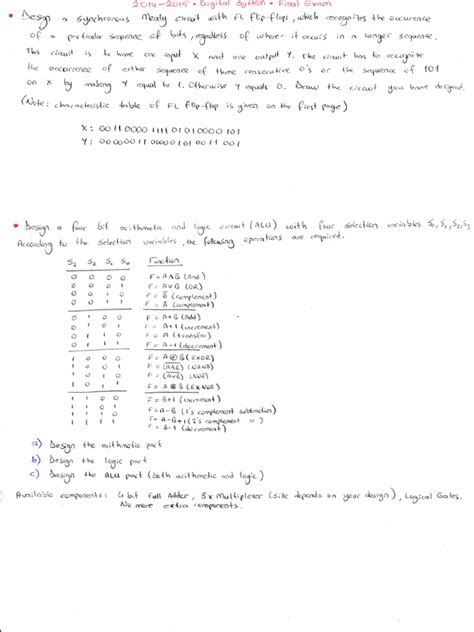 2014-2015 • Digital System • Final Exam
• Design a synchronous Mealy circuit with FL flip-flops, which recognizes the occurence
of a particular sequence of bits, regardless of where it occurs in a longer sequence.
This circuit is to have one input X and one output Y. The circuit has to recognize
the occurrence of either sequence of three consecutive 0's or the sequence of 101
on X by making Y equal to 1. Otherwise Y equals 0. Draw the circuit you have designed.
(Note: characteristic table of FL flip-flop is given on the first page)
X: 00110000 1111 01010000 101
Y: 00000011 0000 010100 11 001
• Design a four bit arithmetic and logic circuit (ALU) with four selection variables S0, S1, S2, S3
According to the selection variables, the following operations are required.
S3 S2 S1 S0 Function
0 0 0 0 F = A∧B (And)
0 0 0 1 F = A∨B (OR)
0 0 1 0 (complement)
0 0 1 1 (complement)
0 1 0 0 F = A+B (Add)
0 1 0 1 F = A+1 (increment)
0 1 1 0 F = A (transfer)
0 1 1 1 F = A-1 (decrement)
1 0 0 0 F = A⊕B (EXOR)
1 0 0 1 (NAND)
1 0 1 0 (NOR)
1 0 1 1 (EXNOR)
1 1 0 0 F = B+1 (increment)
1 1 0 1 F = A-B (1's complement subtraction)
1 1 1 0 F = A-B+1 (2's complement " )
1 1 1 1 F = B-1 (decrement)
a) Design the arithmetic part
b) Design the logic part
c) Design the ALU part (both arithmetic and logic)
Available components: 4 bit Full Adder, 8x Multiplexer (size depends on your design), Logical Gates.
No more extra components.